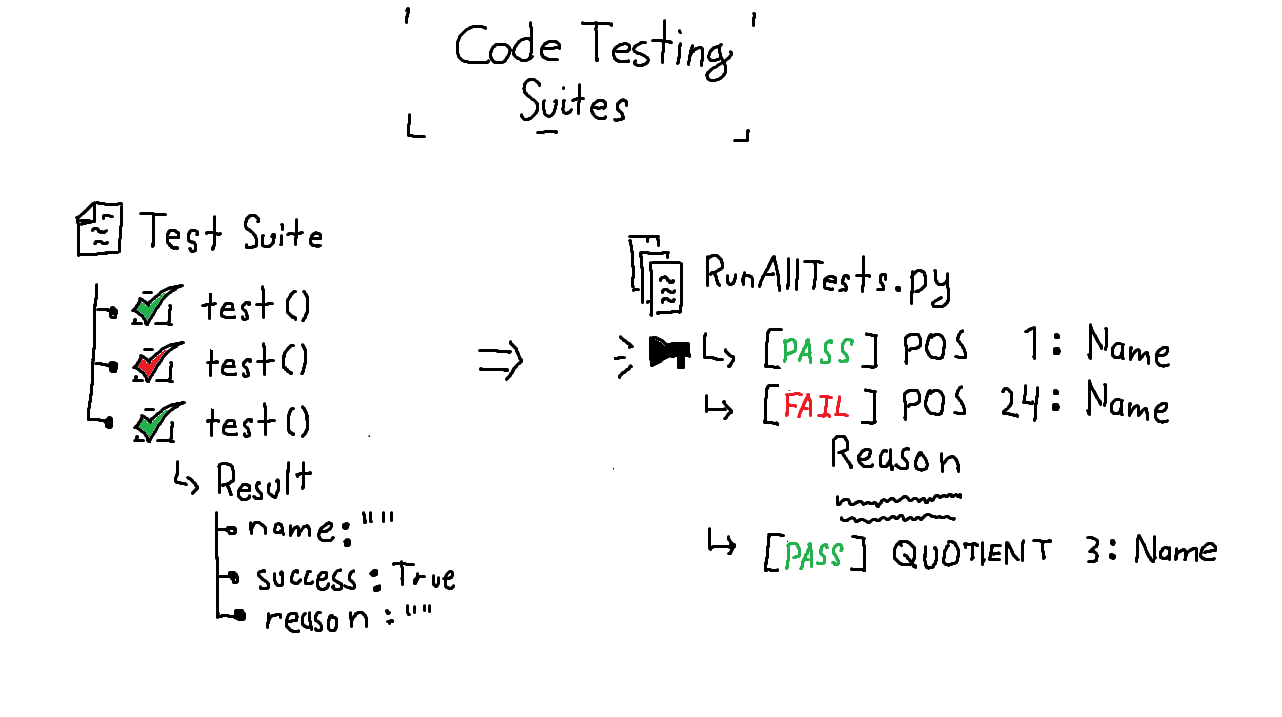 Code Testing
Suites
Test Suite
test()
test()
test()
Result
name: ""
success: True
reason: ""
RunAllTests.py
[PASS] POS 1: Name
[FAIL] POS 24: Name
Reason
[PASS] QUOTIENT 3: Name